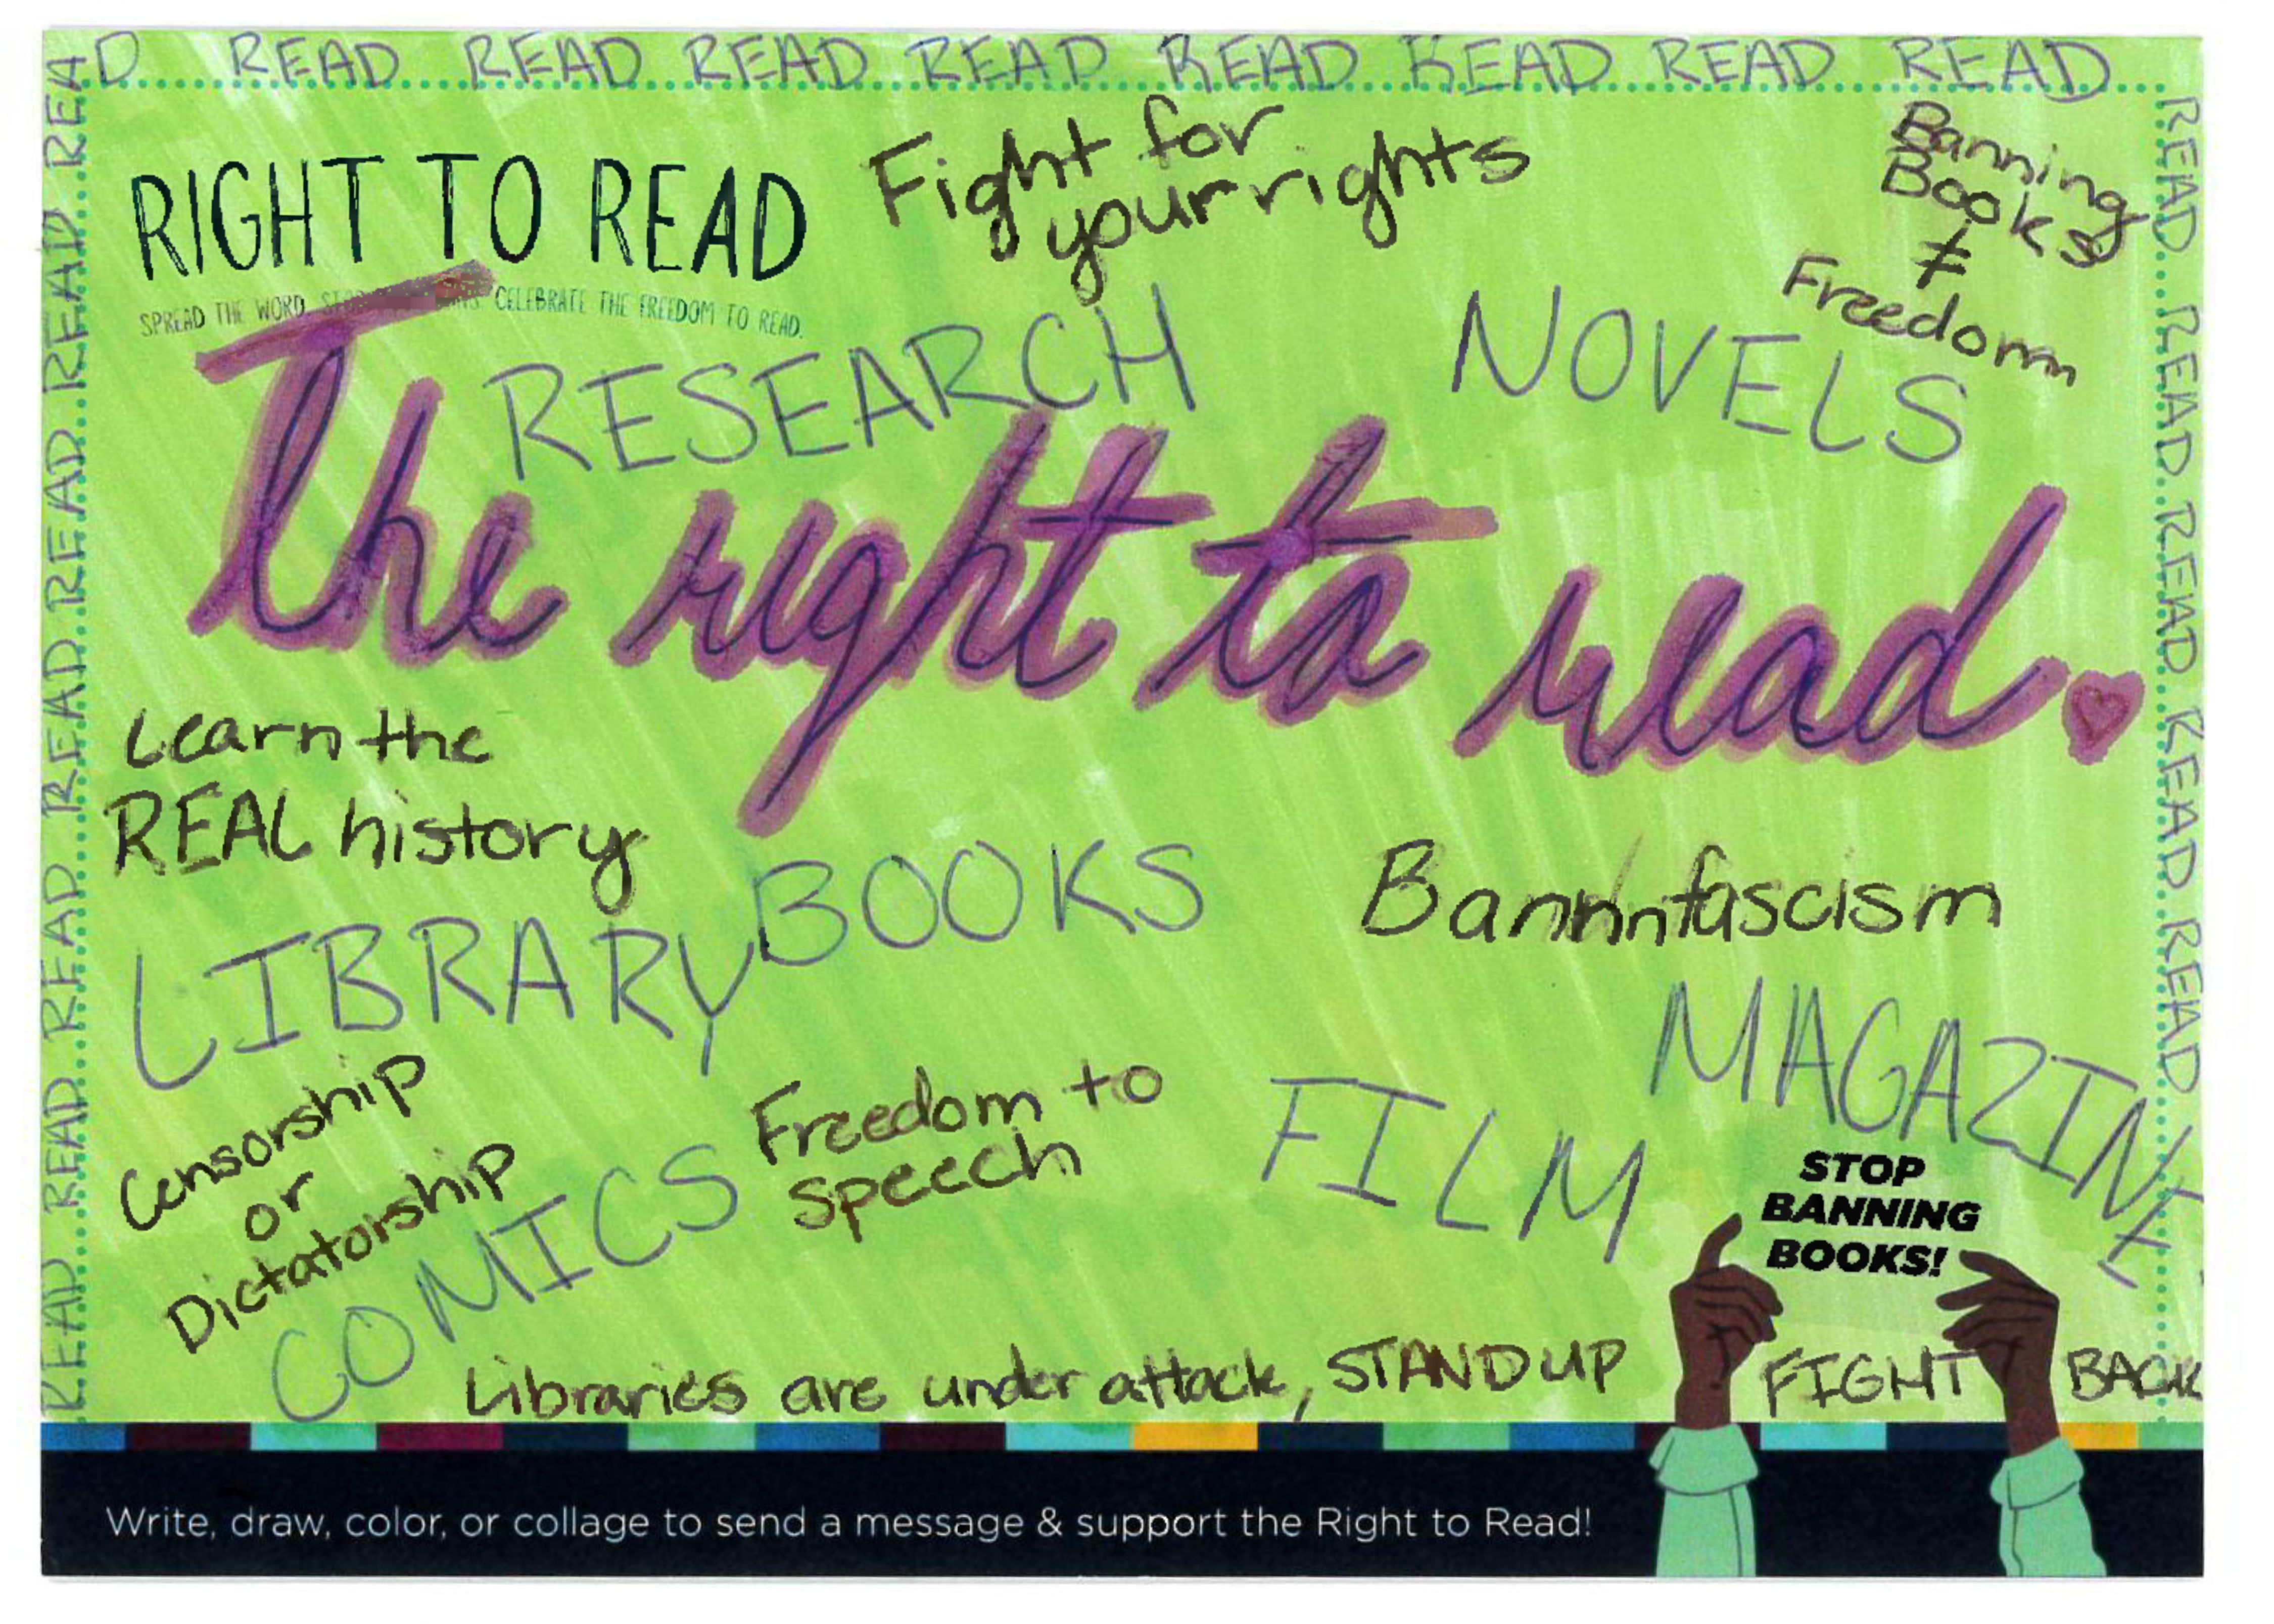 READ READ READ READ READ READ READ READ READ
RIGHT TO READ
SPREAD THE WORD. CELEBRATE THE FREEDOM TO READ.
Fight for
your rights
Banning
Books
≠
Freedom
RESEARCH
NOVELS
The right to read.
Learn the
REAL history
LIBRARY
BOOKS
Bannnnfascism
MAGAZINE
Censorship
or
Dictatorship
COMICS
Freedom to
speech
FILM
STOP
BANNING
BOOKS!
Libraries are under attack, STAND UP
FIGHT BACK
READ READ READ READ READ READ READ
READ READ READ READ READ
Write, draw, color, or collage to send a message & support the Right to Read!